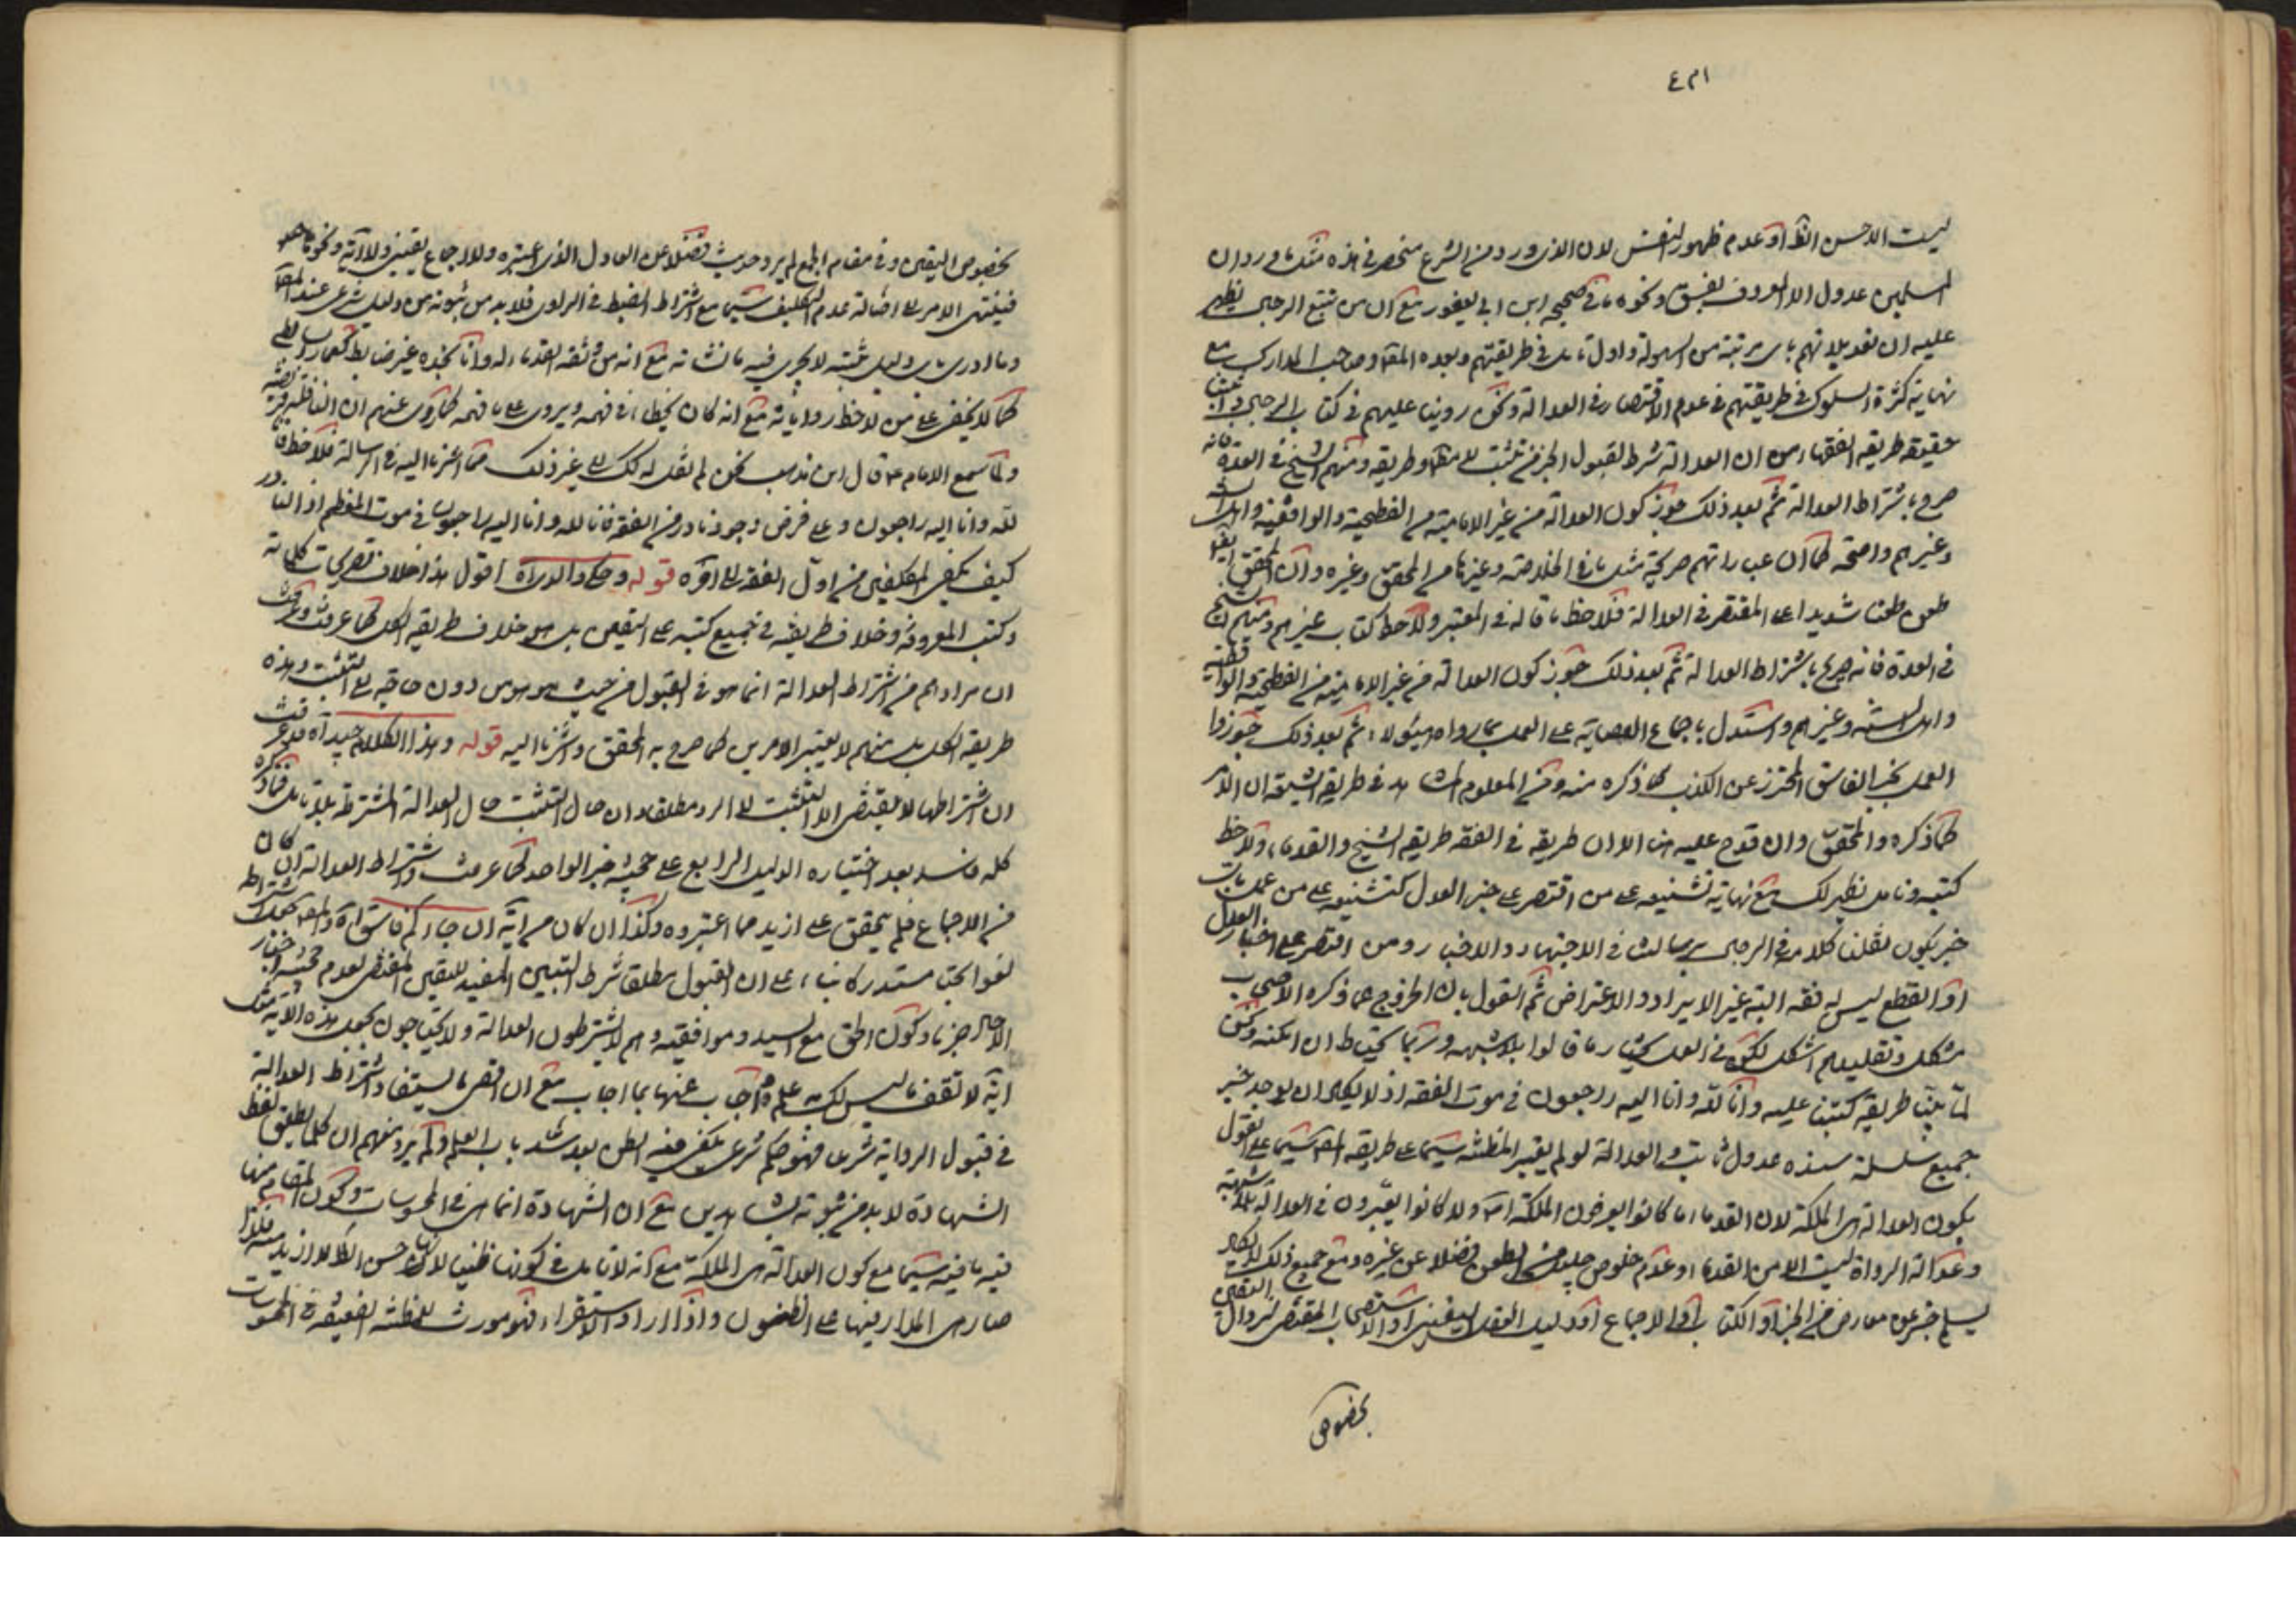 ٤٣١
ليست الا حسن الظ او عدم ظهور الفسق لان الذى ورد من الشرع منحصر فى هذه مثل ما ورد ان
المسلمين عدول الا المعروف بفسق ونحوه ما فى صحيحه ابن ابى يعفور مع ان من تتبع الرجال يظهر
عليه ان تعديلاتهم باى مرتبة من السهولة واول تامل فى طريقتهم وبعده المقا وصاحب المدارك مع
نهاية كثرة السلوك فى طريقتهم فى عدم الاقتصار فى العدالة ونحن روينا عليهم فى كتاب الرجال
حقيقة طريقه الفقهاء من ان العدالة شرط لقبول الخبر من تثبت وطريقه ومنهم الشيخ فى العدة فانه
صرح باشتراط العدالة ثم بعد ذلك جوز كون العدالة من غير الامامية من الفطحية والواقفية واهل السنة
وغيرهم واضحة كما ان عباراتهم صريحة مثل ما فى الخلاصة وغيرها من المحقق وغيره وان المحقق ايضا
طعن طعنا شديدا على المقتصر فى العدالة فلاحظ ما قاله فى المعتبر ولاحظ كتاب غيرهم ومنهم الشيخ
فى العدة فانه صرح باشتراط العدالة ثم بعد ذلك جوز كون العدالة من غير الامامية من الفطحية والواقفية
واهل السنة وغيرهم واستدل باجماع العصابة على العمل بما رواه هؤلاء ثم بعد ذلك جوزوا
العمل بخبر الفاسق المحترز عن الكذب كما ذكره منه ومن المعلوم المشاهد فى طريقه الشيخ ان الامر
كما ذكره والمحقق وان قدح عليه هنا الا ان طريقه فى الفقه طريقه الشيخ والقدماء ولاحظ
كتبه وتامل يظهر لك مع نهاية تشنيعه على من اقتصر على خبر العدل كتشنيعه على من عمل بكل
خبر يكون نقلنا كلامه فى الرجال برسالت فى الاجتهاد والاخبار ومن اقتصر على اخبار العدل
او القطع ليس له فقه البته غير الايراد والاعتراض ثم القول بان الخروج عما ذكره الاصحاب
مشكل وتقليدهم اشكل لكنه فى العمل يختار ما قالوا بلا شبهه وربما يحتاط ان امكنه ونحن
لما بينا طريقه كتبنا عليه وانا لله وانا اليه راجعون فى موت الفقه اذ لا يكاد ان يوجد خبر
جميع سلسلة سنده عدول ثابت العدالة لو لم يعتبر المظنة سيما على طريقه المص سيما على القول
بكون العدالة هى الملكة لان القدماء ما كانوا يعرفون الملكة اصلا ولا كانوا يعتبرون فى العدالة بلا شبهة
وعدالة الرواة ليست الا من القدماء وعدم خلوص جليل من الطعن فضلا عن غيره ومع جميع ذلك لا يكاد
يسلم خبر عن معارض من الخبر او الكتاب او الاجماع او دليل العقل اليقينى او الاستصحاب المقتضى لزوال اليقين
بخصوص
بخصوص اليقين وفى مقام الجمع لم يرد حديث فضلا عن العادل الذى اعتبره ولا اجماع يقينى ولا اية ونحوها
فينتهى الامر الى اصالة عدم التكليف سيما مع اشتراط الضبط فى الراوى فلا بد من ثبوته من دليل شرعى عند المص
وما ادرى باى دليل يثبته لا يجرى فيه ما نشاته مع انه من وثقه القدماء له وانا نجده غير ضابط كعمار الساباطى
كما لا يخفى على من لاحظ رواياته مع انه كان يخطا فى فهمه ويروى على ما فهمه كما روى عنهم ان النافلة فريضة
ولما سمع الامام ع قال اين نذهب نحن لم نقل له لك الى غير ذلك مما اشرنا اليه فى الرسالة فلاحظ
لله وانا اليه راجعون وعلى فرض وجود نادر من الفقه فانا لله وانا اليه راجعون فى موت المعظم اذ النادر
كيف يكفى المكلفين من اول الفقه الى اخره قوله وحكاه والدراه اقول هذا خلاف تصريحات كلماته
وكتبه المعروفة وخلاف طريقه فى جميع كتبه على اليقين بل هو خلاف طريقه الكل كما عرفت وعرفت
ان مرادهم من اشتراط العدالة انما هو فى القبول من حيث هو هو من دون حاجة الى التثبت وهذه
طريقة الكل بل منهم لا يعتبر الامرين كما صرح به المحقق واشرنا اليه قوله وهذا الكلام جيد اه قد عرفت
ان اشتراطها لا يقتضى الا التثبت لا الرد مطلقا وان حال التثبت حال العدالة المشترطة بلا تامل فما ذكره
كله فاسد بعد اختياره الدليل الرابع على حجية خبر الواحد كما عرفت واشتراط العدالة ان كان
من الاجماع فلم يتحقق على ازيد مما اعتبروه وكذا ان كان من اية ان جاءكم فاسق اه
لغوا بحتا مستدركا على ان القبول مطلقا شرط التبيين المفيد لليقين المقتضى لعدم حجية اخبار
الاحاد جزما وكون الحق مع السيد وموافقيه وهم لا يشترطون العدالة ولا يحتاجون بجعل هذه الاية مثل
اية لا تقف ما ليس لك به علم واجاب عنها بما اجاب مع ان اقصى ما يستفاد اشتراط العدالة
فى قبول الرواية شرعا فهو حكم شرعى يكفى فيه الظن بعد سد باب العلم ولم يرد منهم ان كلما يطلق لفظ
الشهادة لا بد من ثبوته بشاهدين مع ان الشهادة انما هى فى المحسوسات وكون المقام منها
فيه ما فيه سيما مع كون العدالة هى الملكة مع انه لا تامل فى كونها ظنيا لان حسن الظ لا ازيد منه فلذا
صار هى المدار فيها على الظنون واذا اراد الاستقراء فهو مورث للمظنة الضعيفة فى المحسوسات